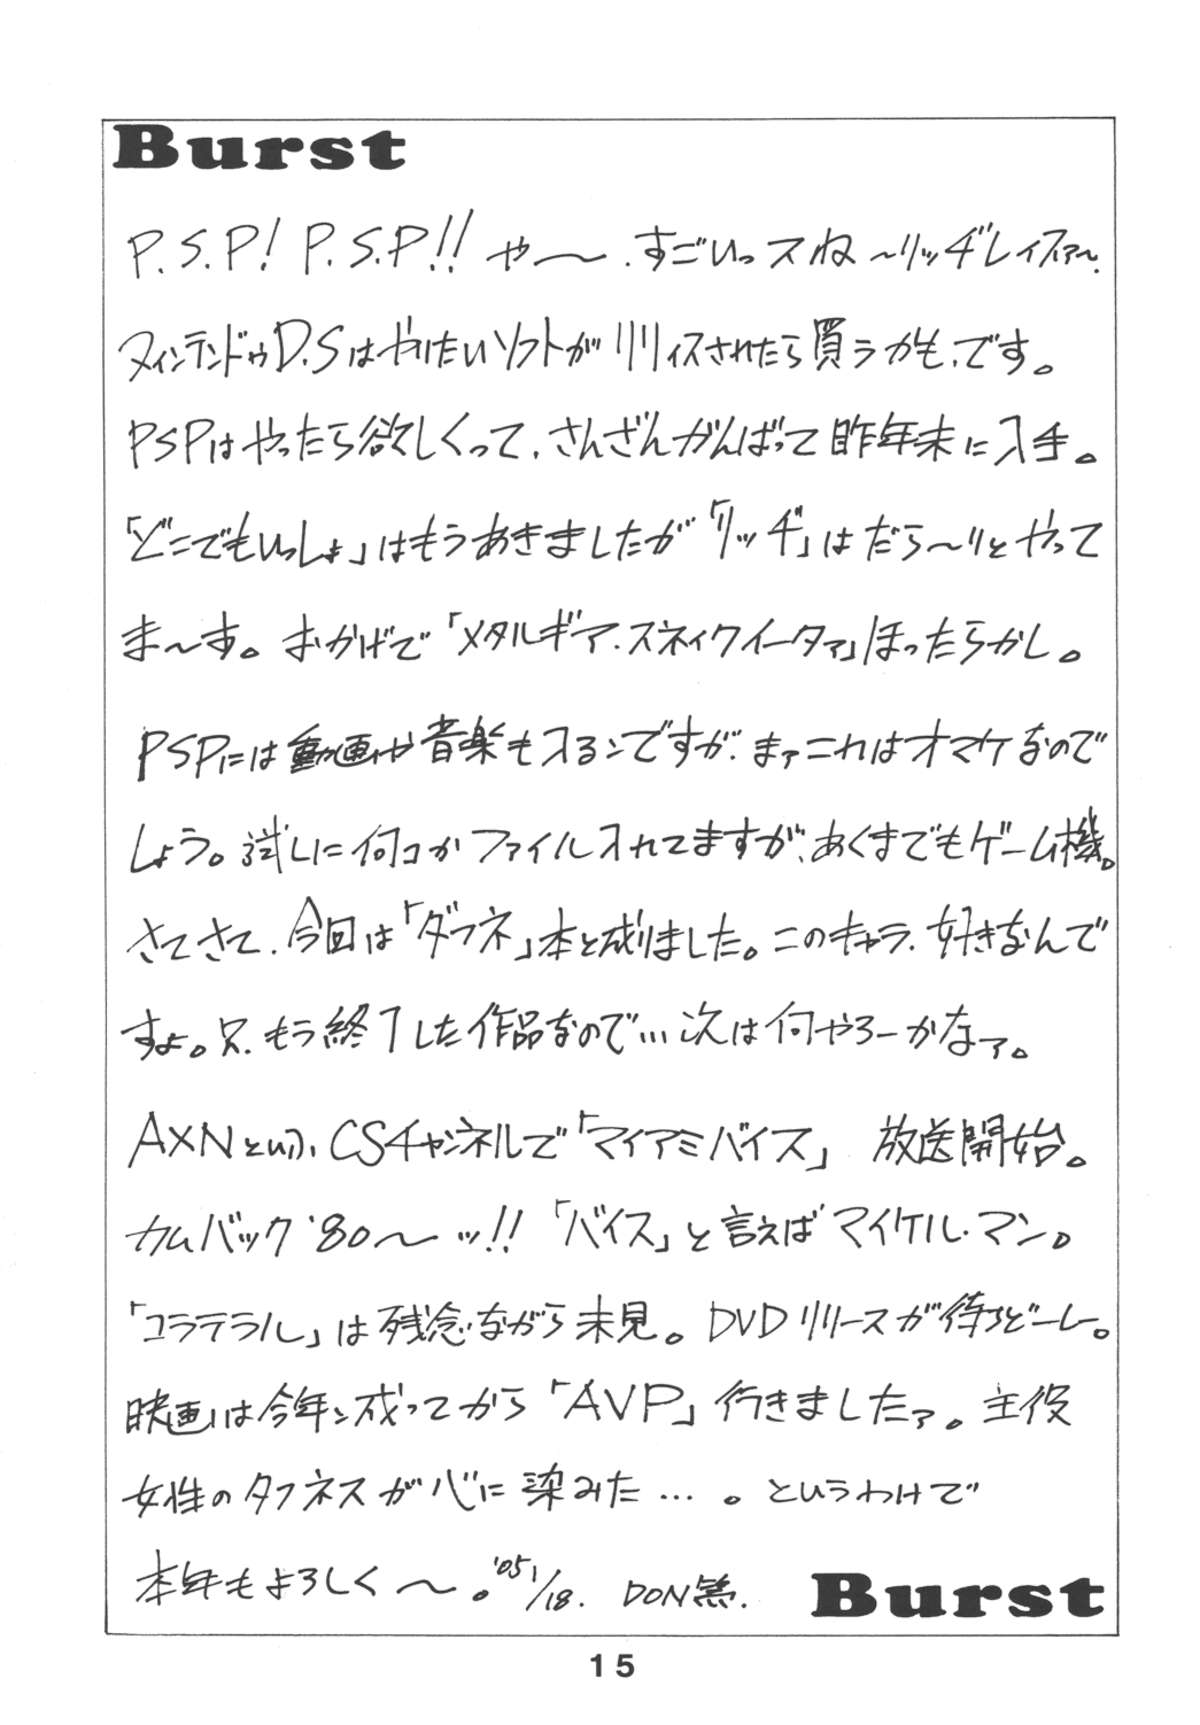 Burst
P.S.P! P.S.P!! や〜、すごいっスね〜リッヂレイスァ〜。
ヌィンテンドゥD.Sはやりたいソフトがリリィスされたら買うかも、です。
PSPはやったら欲しくって、さんざんがんばって昨年末に入手。
「どこでもいっしょ」はもうあきましたが「リッヂ」はだら〜りとやって
ま〜す。おかげで「メタルギア・スネイクイータァ」ほったらかし。
PSPには動画や音楽も入るンですが、まァこれはオマケなので
しょう。試しに何コかファイル入れてますが、あくまでもゲーム機。
さてさて、今回は「ダフネ」本と成りました。このキャラ、好きなんで
すよ。只、もう終了した作品なので…次は何やろーかなァ。
AXNといふ、CSチャンネルで「マイアミバイス」 放送開始。
カムバック'80〜ッ!! 「バイス」と言えばマイケル・マン。
「コラテラル」は残念ながら未見。DVDリリースが待ちどーし。
映画は今年ン成ってから「AVP」行きましたァ。主役
女性のタフネスが心に染みた…。というわけで
本年もよろしく〜。'05 1/18. DON繁.
Burst
15